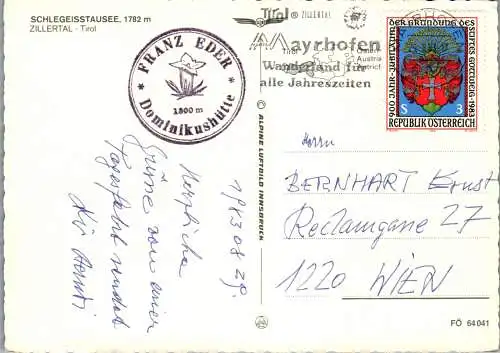 SCHLEGEISSTAUSEE, 1782 m
ZILLERTAL - Tirol
* FRANZ EDER *
1800 m
Dominikushütte
Tirol ZILLERTAL
Mayrhofen
Tirol
Austria
Wanderland für
alle Jahreszeiten
900 JAHR-JUBILÄUM DER GRÜNDUNG DES STIFTES GÖTTWEIG · 1983
S 3
REPUBLIK ÖSTERREICH
1983 08 29.
Herzliche
Grüsse von einer
sendet
© ALPINE LUFTBILD INNSBRUCK
Herrn
BERNHART Ernst
Reclamgasse 27
1220 WIEN
FÖ 64041